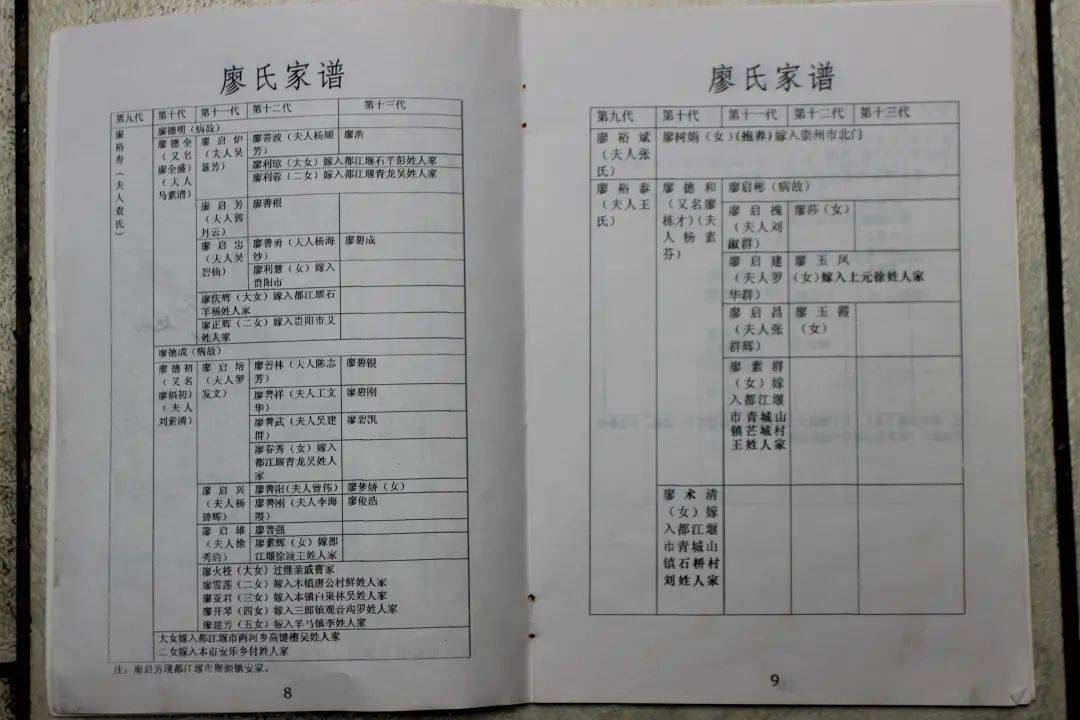 廖氏家谱
第九代 第十代 第十一代 第十二代 第十三代
廖裕寿(夫人袁氏)
廖德明(病故)
廖德全
(又名
廖全盛)
(夫人
马素清)
廖启炉
(夫人吴
芳)
廖善波(夫人杨顺
芳)
廖浩
廖利琼(大女)嫁入都江堰石羊彭姓人家
廖利蓉(二女)嫁入都江堰青龙吴姓人家
廖启芳
(夫人郭
丹云)
廖善根
廖启忠
(夫人吴
碧仙)
廖善勇(夫人杨海
纱)
廖碧成
廖利慧(女)嫁入
贵阳市
廖庆辉(大女)嫁入都江堰石
羊杨姓人家
廖正辉(二女)嫁入贵阳市艾
姓人家
廖德成(病故)
廖德初
(又名
廖福初)
(夫人
刘素清)
廖启培
(夫人罗
发文)
廖善林(夫人陈志
芳)
廖碧银
廖善祥(夫人王文
华)
廖碧刚
廖善武(夫人吴建
群)
廖碧凯
廖春秀(女)嫁入
都江堰青龙吴姓人
家
廖启兴
(夫人杨
碧辉)
廖善阳(夫人曾伟)
廖梦娇(女)
廖善刚(夫人李海
霞)
廖俊浩
廖启雄
(夫人徐
秀清)
廖善强
廖素辉(女)嫁都
江堰徐渡王姓人家
廖火枝(大女)过继亲戚曹家
廖雪莲(二女)嫁入本镇唐公村鲜姓人家
廖亚君(三女)嫁入本镇白果林吴姓人家
廖开琴(四女)嫁入三郎镇观音沟罗姓人家
廖建芳(五女)嫁入羊马镇李姓人家
大女嫁入都江堰市两河乡高键槽吴姓人家
二女嫁入本市安乐乡付姓人家
注:廖启芳现都江堰市聚源镇安家。
8
廖氏家谱
第九代 第十代 第十一代 第十二代 第十三代
廖裕斌
(夫人张
氏)
廖树娟(女)(抱养)嫁入崇州市北门
廖裕泰
(夫人王
氏)
廖德和
(又名廖
栋才)(夫
人杨素
芬)
廖启彬(病故)
廖启槐
(夫人刘
淑群)
廖莎(女)
廖启建
(夫人罗
华群)
廖玉凤
(女)嫁入上元徐姓人家
廖启昌
(夫人张
群辉)
廖玉霞
(女)
廖素群
(女)嫁
入都江堰
市青城山
镇芒城村
王姓人家
廖术清
(女)嫁
入都江堰
市青城山
镇石桥村
刘姓人家
9